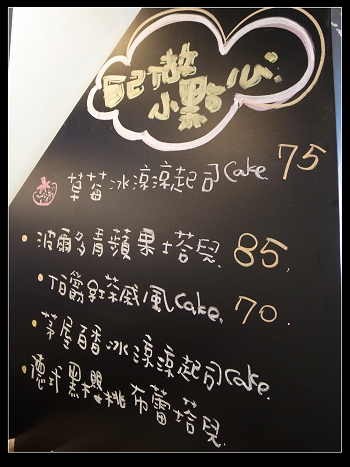 配茶小點心
草莓冰涼涼起司Cake 75
波爾多青蘋果塔兒 85.
伯爵紅茶戚風Cake. 70.
茅屋百香冰涼涼起司Cake.
德式黑櫻桃布蕾塔兒